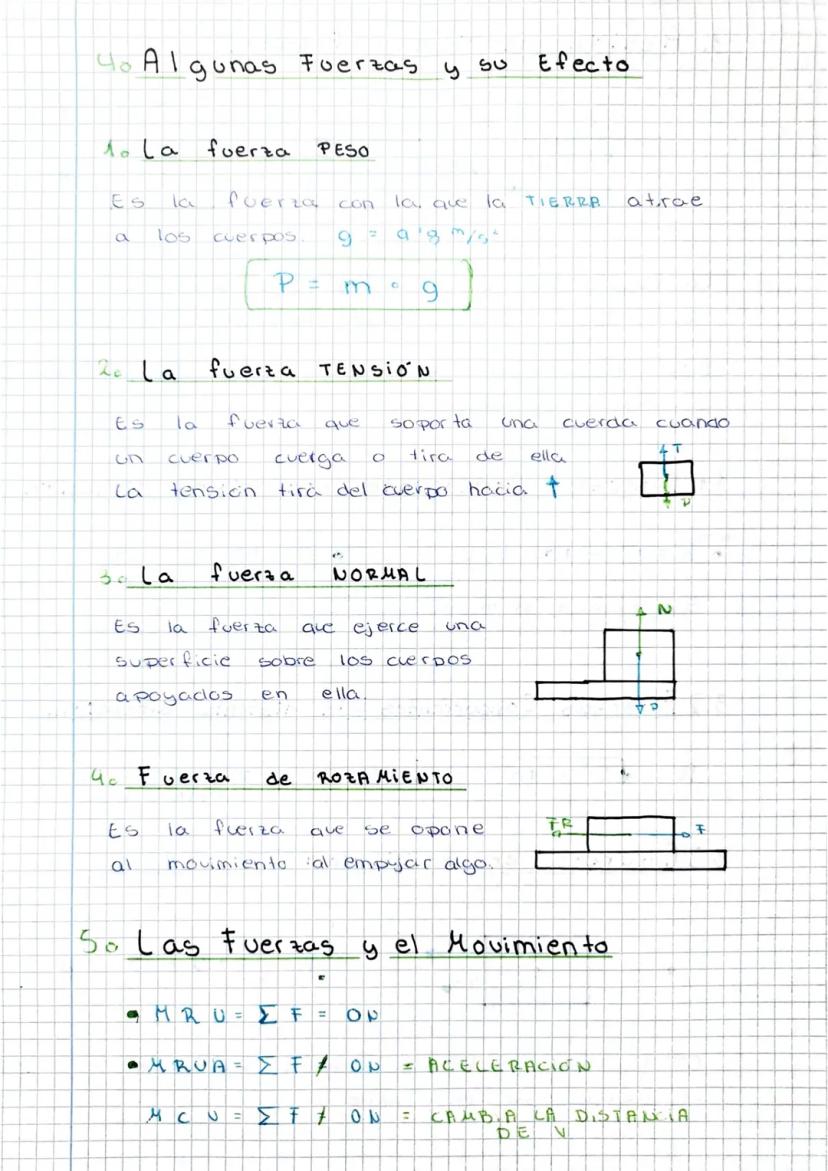 4. Algunas Fuerzas y su Efecto
1. La fuerza PESO
Es la fuerza con la que la TIERRA atrae
a los cuerpos. g = 9'8 m/s²
P = m · g
2. La fuerza TENSIÓN
Es la fuerza que soporta una cuerda cuando
un cuerpo cuerga o tira de ella
T
La tensión tira del cuerpo hacia ↑
P
3. La fuerza NORMAL
N
Es la fuerza que ejerce una
superficie sobre los cuerpos
apoyados en ella.
P
4. Fuerza de ROZAMIENTO
Es la fuerza que se opone
FR F
al movimiento al empujar algo.
5. Las Fuerzas y el Movimiento
• MRU = Σ F = 0N
• MRUA = Σ F ≠ 0N = ACELERACIÓN
MCU = Σ F ≠ 0N = CAMBIA LA DISTANCIA
DE V